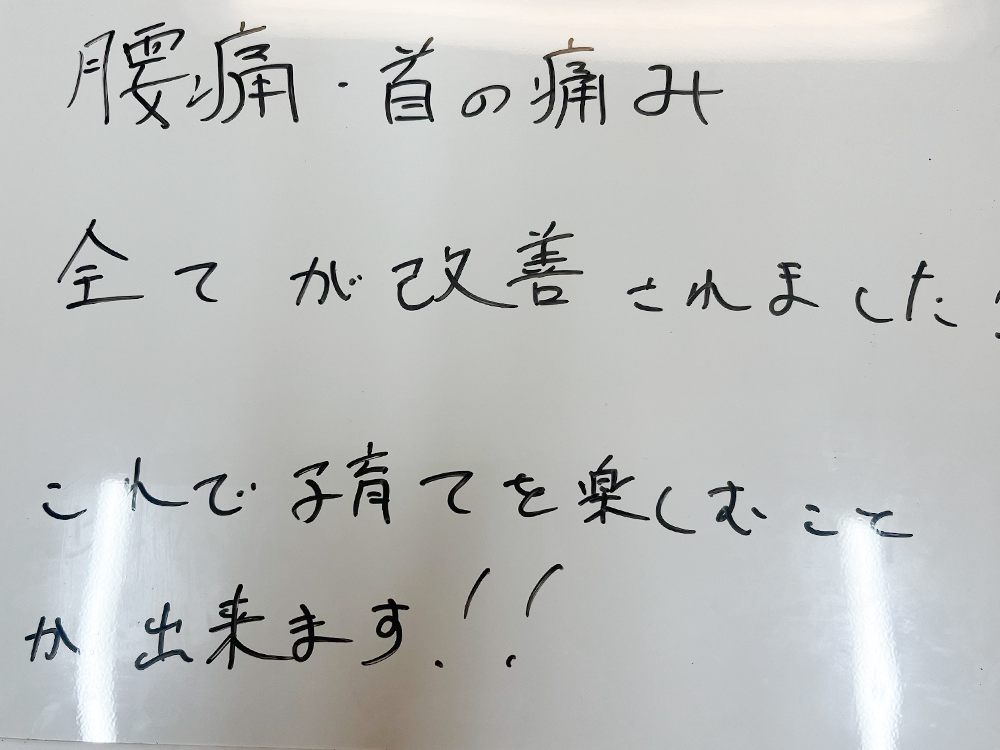 腰痛・首の痛み
全てが改善されました!
これで子育てを楽しむこと
が出来ます!!